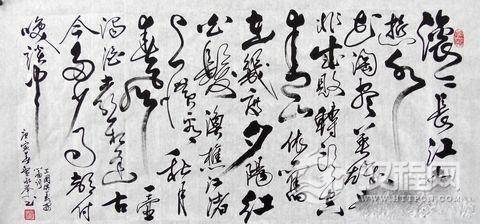 滚滚长江东
逝水
浪花淘尽英雄
是非成败转头空
青山依旧
在几度夕阳红
白发渔樵江渚
上惯看秋月
春风一壶
浊酒喜相逢古
今多少事都付
笑谈中
庚寅年
汉程网